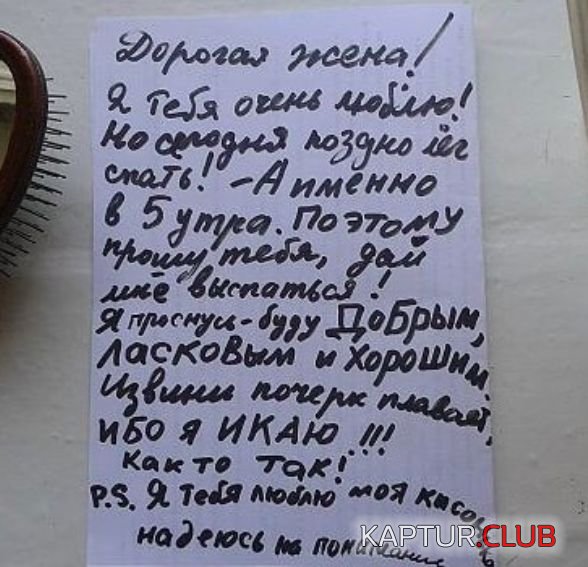 Дорогая жена!
Я тебя очень люблю!
Но сегодня поздно лёг
спать! - А именно
в 5 утра. Поэтому
прошу тебя, дай
мне выспаться!
Я проснусь - буду ДОБРЫМ,
ЛАСКОВЫМ и ХОРОШИМ.
Извини почерк плавает,
ИБО Я ИКАЮ!!!
Как то так!
P.S. Я тебя люблю моя
надеюсь на понимание
KAPTUR.CLUB